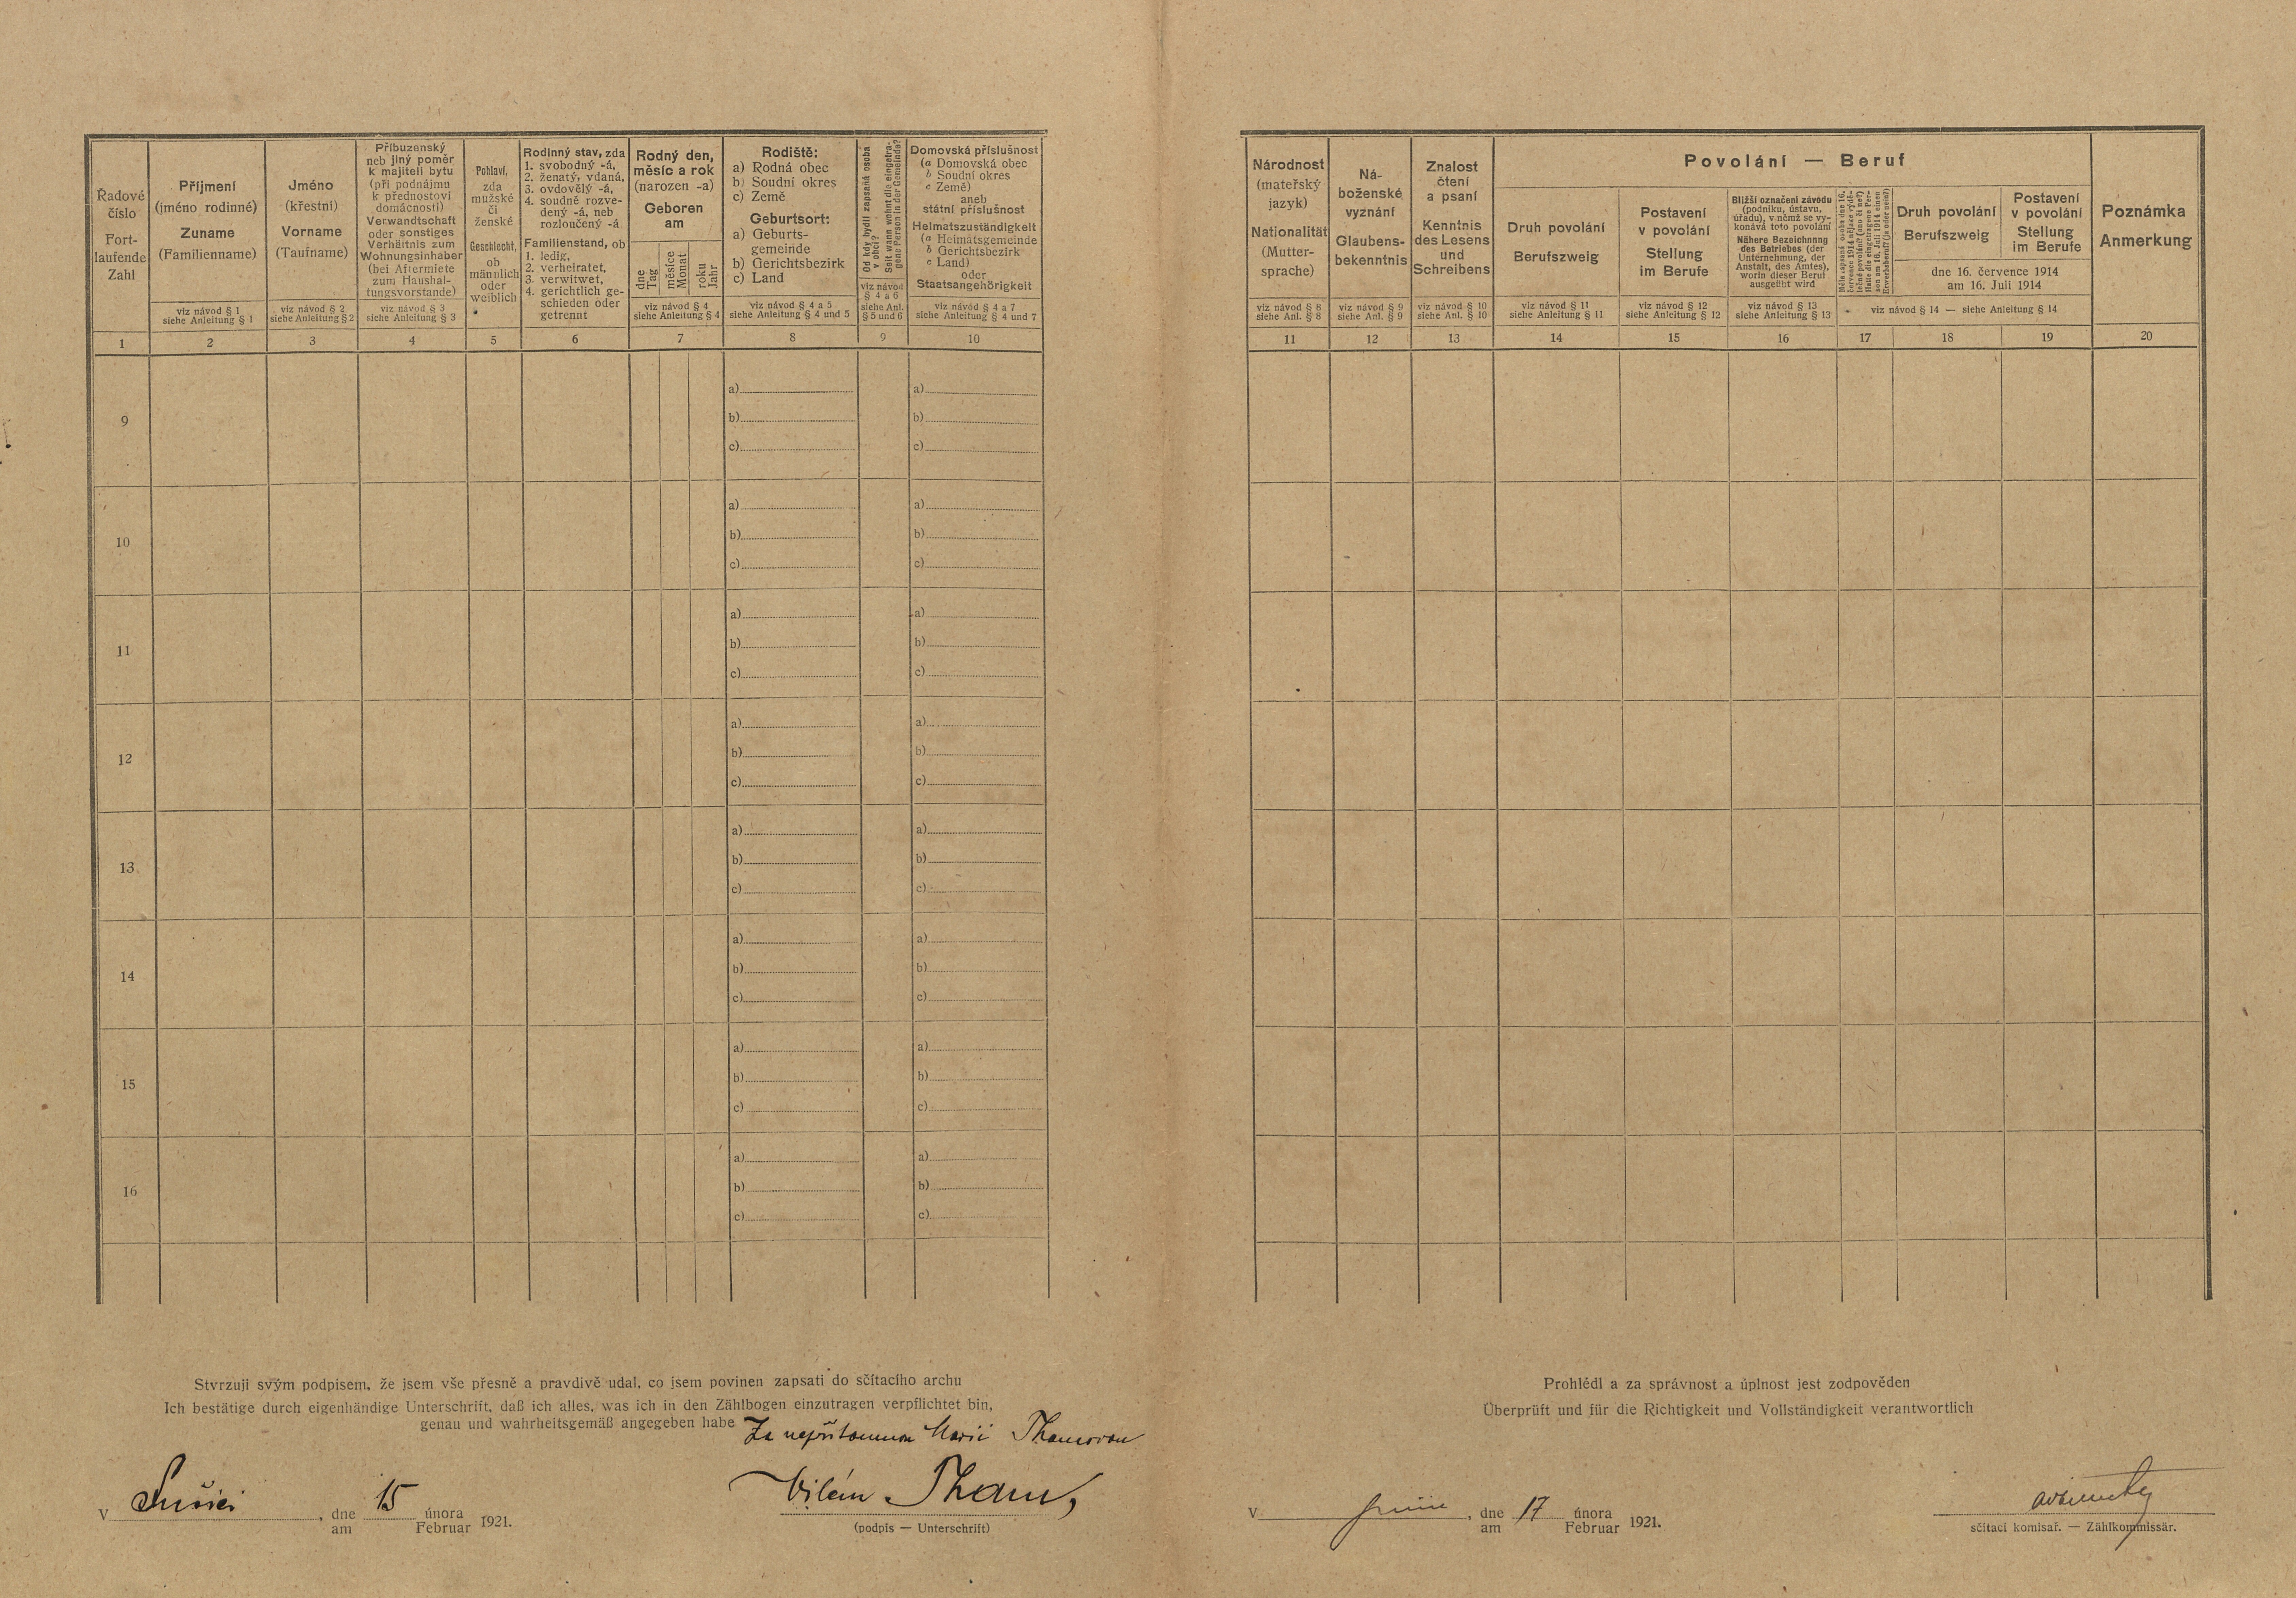 Řadové
číslo
Fort-
laufende
Zahl
Příjmení
(jméno rodinné)
Zuname
(Familienname)
viz návod § 1
siehe Anleitung § 1
Jméno
(křestní)
Vorname
(Taufname)
viz návod § 2
siehe Anleitung § 2
Příbuzenský
neb jiný poměr
k majiteli bytu
(při podnájmu
k přednostovi
domácnosti)
Verwandtschaft
oder sonstiges
Verhältnis zum
Wohnungsinhaber
(bei Aftermiete
zum Haushal-
tungsvorstande)
viz návod § 3
siehe Anleitung § 3
Pohlaví,
zda
mužské
či
ženské
Geschlecht,
ob
männlich
oder
weiblich
Rodinný stav, zda
1. svobodný -á,
2. ženatý, vdaná,
3. ovdovělý -á,
4. soudně rozve-
dený -á, neb
rozloučený -á
Familienstand, ob
1. ledig,
2. verheiratet,
3. verwitwet,
4. gerichtlich ge-
schieden oder
getrennt
Rodný den,
měsíc a rok
(narozen -a)
Geboren
am
dne
Tag
měsíce
Monat
roku
Jahr
viz návod § 4
siehe Anleitung § 4
Rodiště:
a) Rodná obec
b) Soudní okres
c) Země
Geburtsort:
a) Geburts-
gemeinde
b) Gerichtsbezirk
c) Land
viz návod § 4 a 5
siehe Anleitung § 4 und 5
Od kdy bydlí zapsaná osoba
v obci?
Seit wann wohnt die eingetra-
gene Person in der Gemeinde?
viz návod
§ 4 a 6
siehe Anl.
§ 5 und 6
Domovská příslušnost
(a Domovská obec
b Soudní okres
c Země)
aneb
státní příslušnost
Heimatszuständigkeit
(a Heimatsgemeinde
b Gerichtsbezirk
c Land)
oder
Staatsangehörigkeit
viz návod § 4 a 7
siehe Anleitung § 4 und 7
1 2 3 4 5 6 7 8 9 10
9
a) a)
b) b)
c) c)
10
a) a)
b) b)
c) c)
11
a) a)
b) b)
c) c)
12
a) a)
b) b)
c) c)
13
a) a)
b) b)
c) c)
14
a) a)
b) b)
c) c)
15
a) a)
b) b)
c) c)
16
a) a)
b) b)
c) c)
Stvrzuji svým podpisem, že jsem vše přesně a pravdivě udal, co jsem povinen zapsati do sčítacího archu
Ich bestätige durch eigenhändige Unterschrift, daß ich alles, was ich in den Zählbogen einzutragen verpflichtet bin,
genau und wahrheitsgemäß angegeben habe
Za nepřítomnou Marii Thamovou
V Sušici, dne 15 února 1921.
am Februar
Vilém Tham,
(podpis — Unterschrift)
Národnost
(mateřský
jazyk)
Nationalität
(Mutter-
sprache)
viz návod § 8
siehe Anl. § 8
Ná-
boženské
vyznání
Glaubens-
bekenntnis
viz návod § 9
siehe Anl. § 9
Znalost
čtení
a psaní
Kenntnis
des Lesens
und
Schreibens
viz návod § 10
siehe Anl. § 10
Povolání — Beruf
Druh povolání
Berufszweig
viz návod § 11
siehe Anleitung § 11
Postavení
v povolání
Stellung
im Berufe
viz návod § 12
siehe Anleitung § 12
Bližší označení závodu
(podniku, ústavu,
úřadu), v němž se vy-
konává toto povolání
Nähere Bezeichnung
des Betriebes (der
Unternehmung, der
Anstalt, des Amtes),
worin dieser Beruf
ausgeübt wird
viz návod § 13
siehe Anleitung § 13
Měla zapsaná osoba dne 16.
července 1914 nějaké výdě-
lečné povolání? (ano či ne?)
Hatte die eingetragene Per-
son am 16. Juli 1914 einen
Erwerbsberuf? (ja oder nein?)
Druh povolání
Berufszweig
Postavení
v povolání
Stellung
im Berufe
dne 16. července 1914
am 16. Juli 1914
viz návod § 14 — siehe Anleitung § 14
Poznámka
Anmerkung
11 12 13 14 15 16 17 18 19 20
Prohlédl a za správnost a úplnost jest zodpověden
Überprüft und für die Richtigkeit und Vollständigkeit verantwortlich
V , dne 17 února 1921.
am Februar
sčítací komisař. — Zählkommissär.